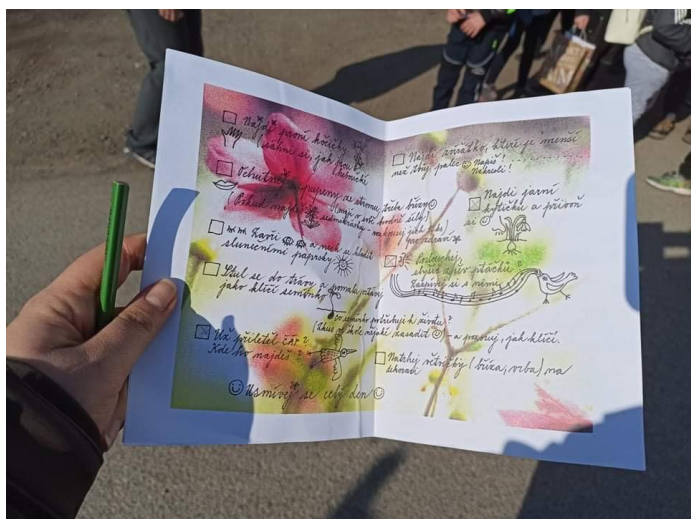 Najdi první kočičky
(sáhni si, jak jsou heboučké
Ochutnej pupeny ze stromu, třeba břízy
(Pokud najdeš sedmikrásky -
Zavři a nech se hladit
slunečními paprsky
Stul se do trávy a pomalu
jako klíčí semínko
Co semínko potřebuje k životu?
(Zkus si doma nějaké zasadit a pozoruj, jak klíčí.
Už přiletěl čáp?
Kde ho najdeš?
Usmívej se celý den
Najdi zvířátko, které je menší
než tvůj palec Napiš!
Nakresli!
Najdi jarní
kytičku a přivoň
si
Poslouchej,
zpěv ptáčků
Zazpívej si s nimi
Natrhej větvičky (bříza, vrba) na